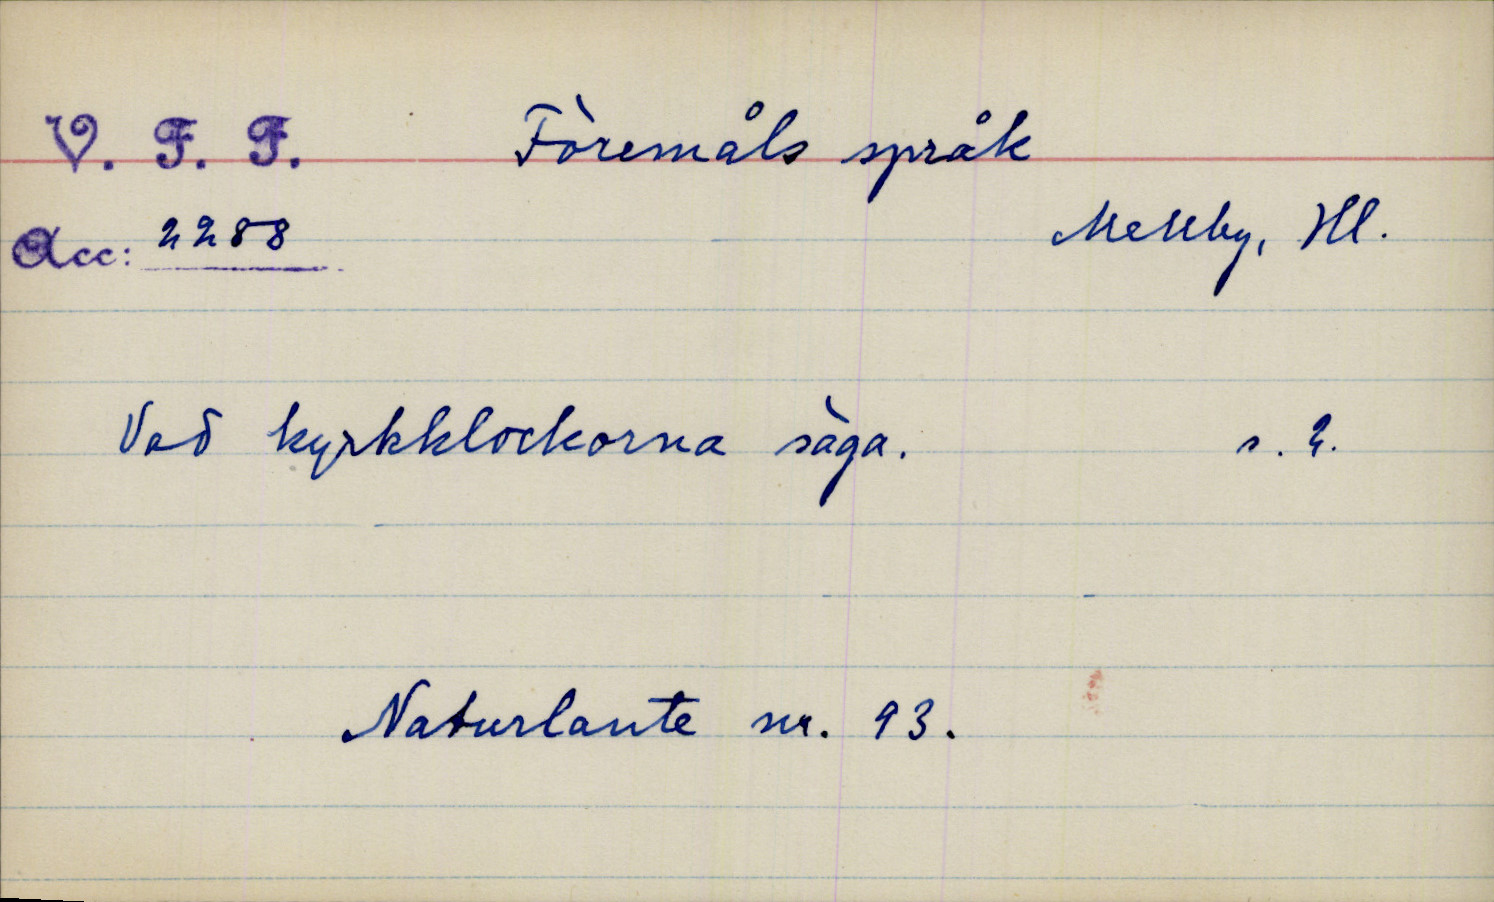 V. F. F. Föremåls språk
Acc: 2288 Mellby, Hl.
Vad kyrkklockorna säga. s. 2.
Naturlaute nr. 93.